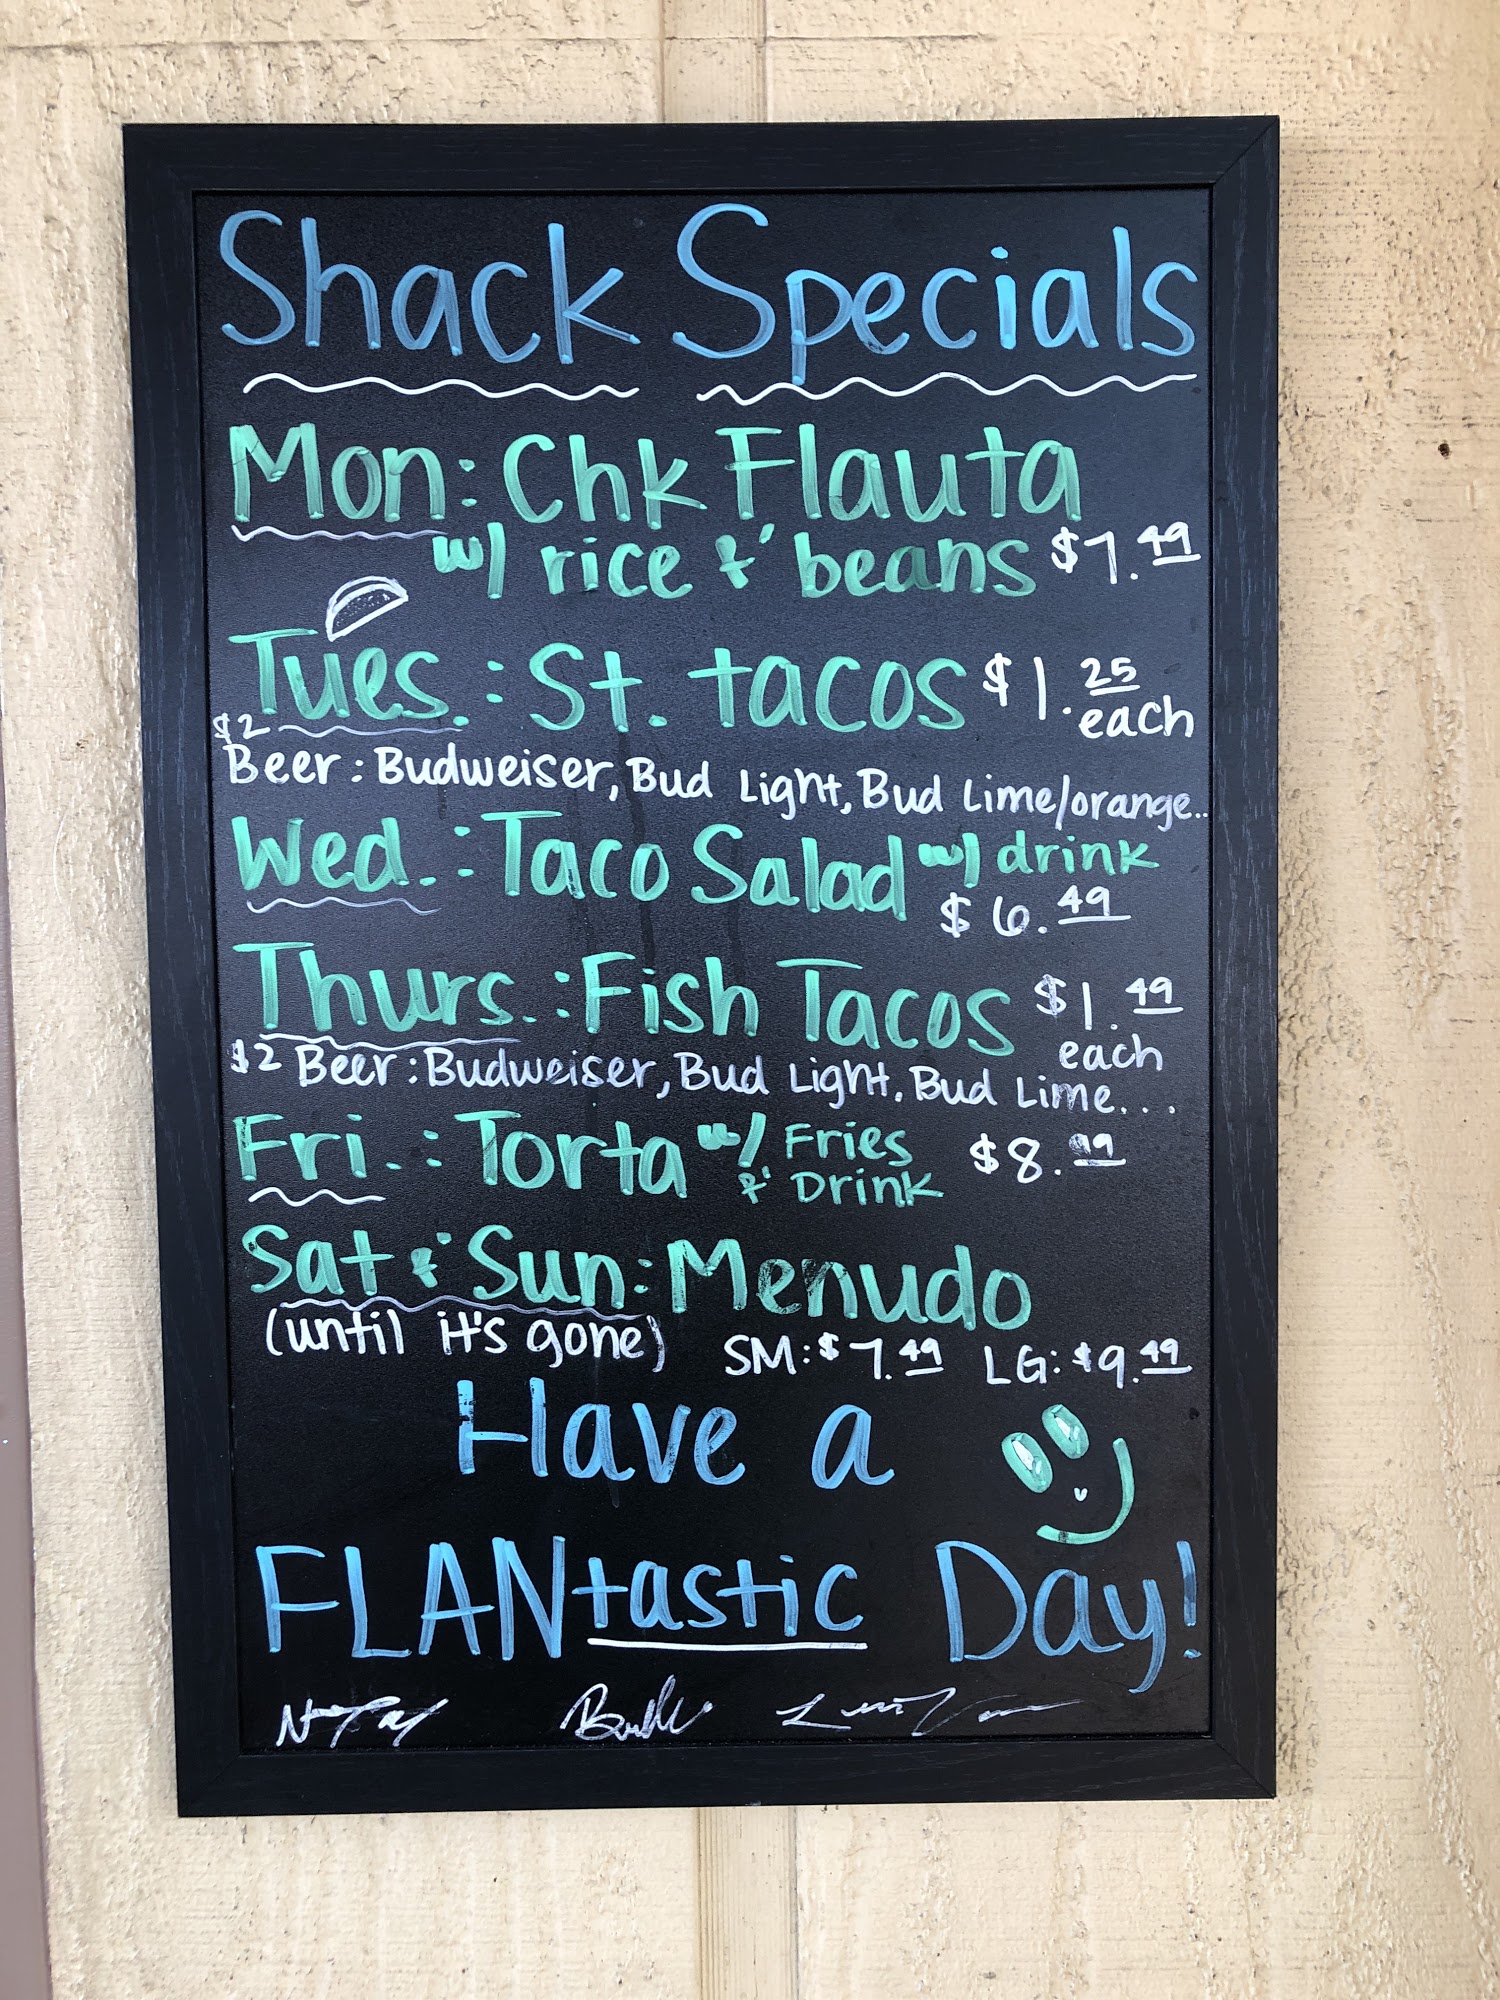 Shack Specials
Mon: Chk Flauta
w/ rice & beans $7.49
Tues.: St. tacos $1.25
each
$2
Beer: Budweiser, Bud Light, Bud Lime/orange..
Wed.: Taco Salad w/ drink
$6.49
Thurs.: Fish Tacos $1.49
each
$2 Beer: Budweiser, Bud Light, Bud Lime...
Fri.: Torta w/ Fries $8.99
& Drink
Sat & Sun: Menudo
(until it's gone) SM: $7.49 LG: $9.49
Have a
FLANtastic Day!